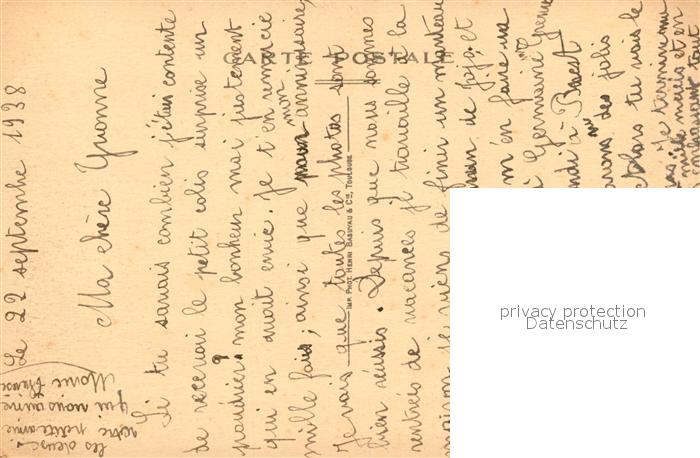 Le 22 septembre 1938
Ma chère Yvonne
Si tu savais combien j'étais contente
de recevoir le petit colis surprise un
poudrier mon bonheur moi justement
qui en avait envie. Je t'en remercie
mille fois, ainsi que pour mon anniversaire,
Je vois que toutes les photos sont
bien réussis. Depuis que nous sommes
rentrés de vacances je travaille à la
maison je viens de finir un manteau
de Jojo, et
m'en faire un
à Germaine
à Brest
des jolis
alors tu vois le
Je termine
mille mercis et en
les deux
votre petite amie
qui vous aime
CARTE POSTALE
IMP. PHOT. HENRI BASUYAU & CIE, TOULOUSE
privacy protection
Datenschutz